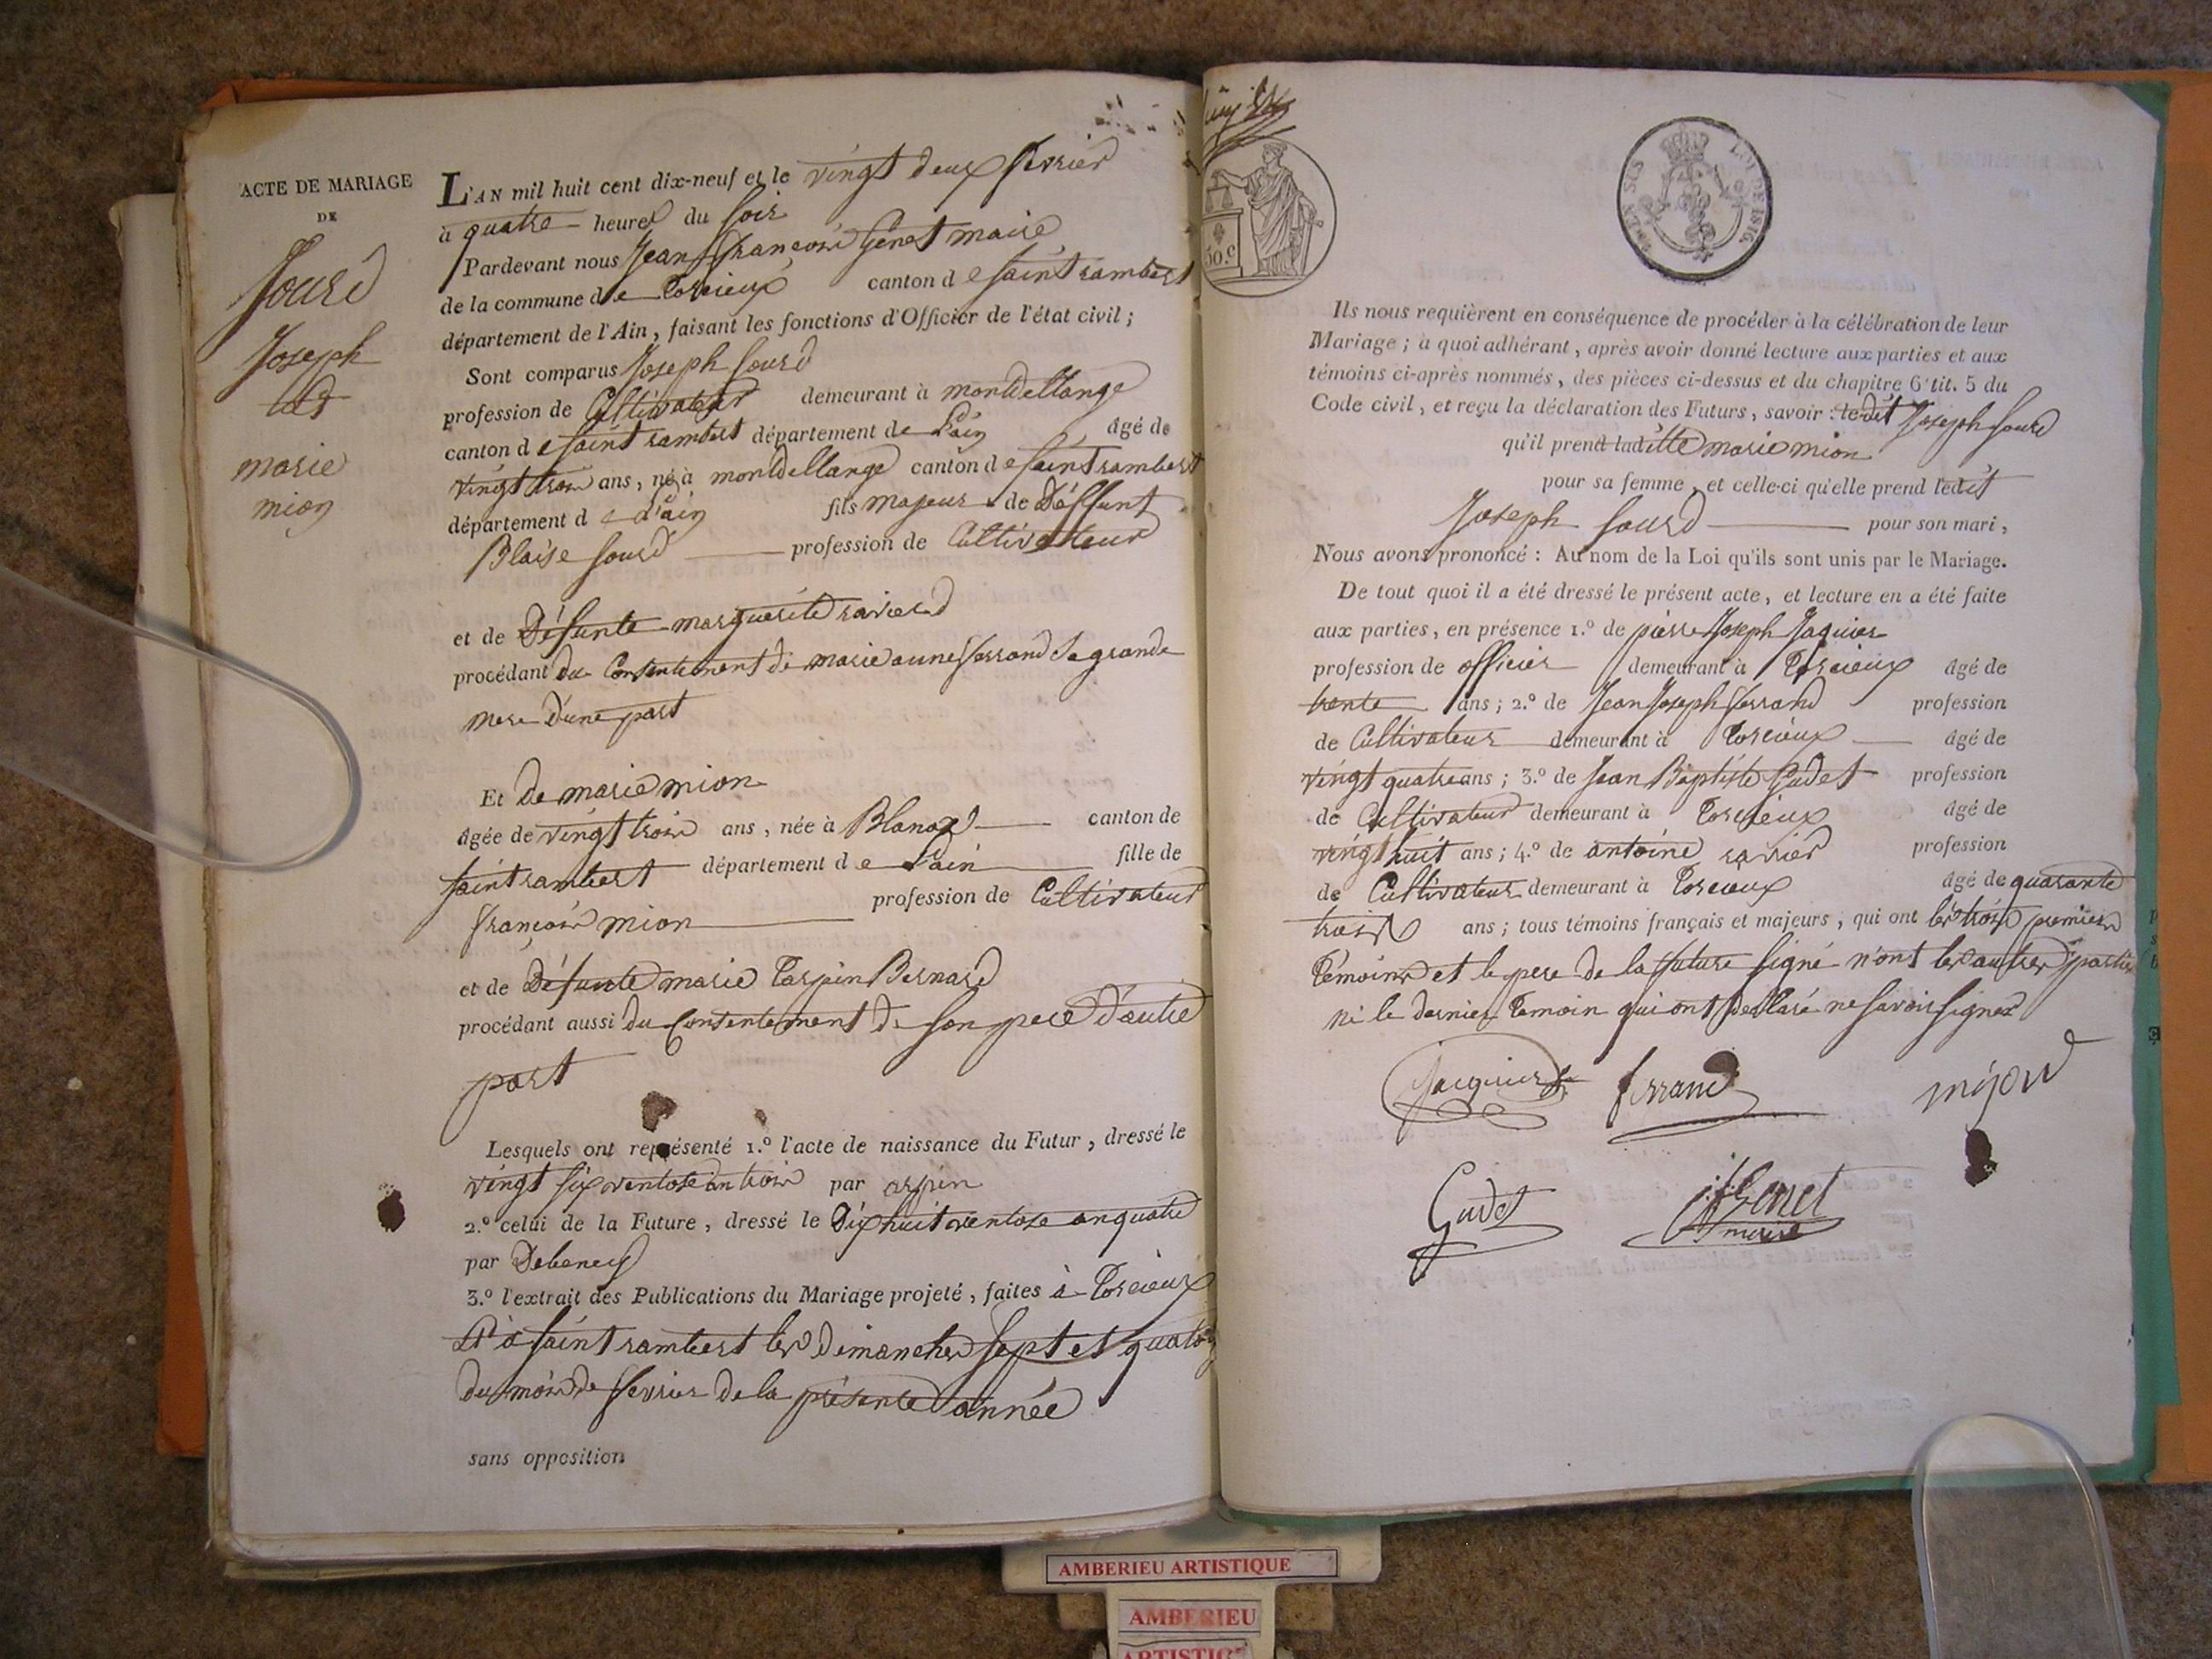 ACTE DE MARIAGE
DE
Sourd
Joseph
et
marie
mion
L'AN mil huit cent dix-neuf et le vingt deux fevrier
à quatre heures du soir
Pardevant nous Jean françois Genet maire
de la commune de Torcieux canton de saint rambert
département de l'Ain, faisant les fonctions d'Officier de l'état civil;
Sont comparus Joseph Sourd
profession de Cultivateur demeurant à montdellange
canton de saint rambert département de L'ain âgé de
vingt trois ans, né à montdellange canton de saint rambert
département de L'ain fils majeur de Déffunt
Blaise Sourd profession de Cultivateur
et de Défunte marguerite ravierd
procédant du Consentement de marie anne ferrand Sa grande
mere D'une part
Et De marie mion
âgée de vingt trois ans, née à Blanaz canton de
saint rambert département de L'ain fille de
françois mion profession de Cultivateur
et de Défunte marie Tarpin Bernard
procédant aussi du Consentement de Son pere D'autre
part
Lesquels ont représenté 1.º l'acte de naissance du Futur, dressé le
vingt six ventose an trois par arpin
2.º celui de la Future, dressé le Dix huit ventose an quatre
par Debeney
3.º l'extrait des Publications du Mariage projeté, faites à Torcieux
Et à saint rambert les Dimanches sept et quatorz
du mois de fevrier de la présente année
sans opposition
50.c
LOI DE 1816
Ils nous requièrent en conséquence de procéder à la célébration de leur
Mariage; à quoi adhérant, après avoir donné lecture aux parties et aux
témoins ci-après nommés, des pièces ci-dessus et du chapitre 6 tit. 5 du
Code civil, et reçu la déclaration des Futurs, savoir: ledit Joseph Sourd
qu'il prend laditte marie mion
pour sa femme, et celle-ci qu'elle prend ledit
Joseph Sourd pour son mari,
Nous avons prononcé: Au nom de la Loi qu'ils sont unis par le Mariage.
De tout quoi il a été dressé le présent acte, et lecture en a été faite
aux parties, en présence 1.º de pierre Joseph Jaquier
profession de officier demeurant à Torcieux âgé de
trente ans; 2.º de Jean Joseph ferrand profession
de Cultivateur demeurant à Torcieux âgé de
vingt quatre ans; 3.º de Jean Baptiste Gudet profession
de Cultivateur demeurant à Torcieux âgé de
vingt huit ans; 4.º de antoine ravier profession
de Cultivateur demeurant à Torcieux âgé de quarante
trois ans; tous témoins français et majeurs, qui ont les trois premiers
Témoins et le pere de la future signé n'ont les autres partie
ni le dernier Temoin qui ont declaré ne savoir signer
Jacquier ferrand mion
Gudet jf Genet
maire
AMBERIEU ARTISTIQUE
AMBERIEU
ARTISTIQ